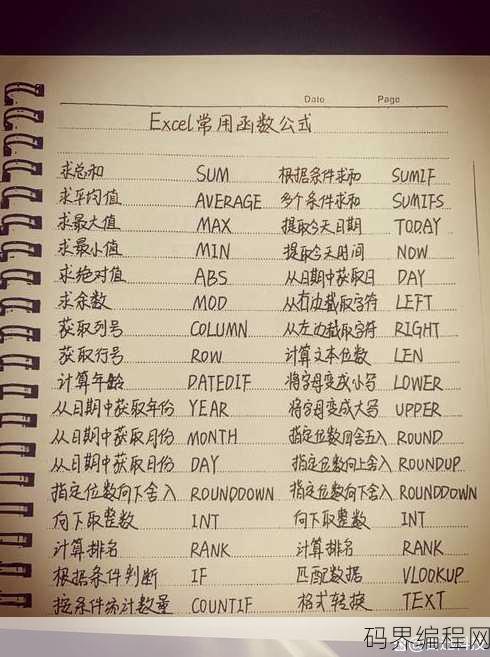 Date Page
Excel常用函数公式
求总和 SUM 根据条件求和 SUMIF
求平均值 AVERAGE 多个条件求和 SUMIFS
求最大值 MAX 提取今天日期 TODAY
求最小值 MIN 提取今天时间 NOW
求绝对值 ABS 从日期中获取日 DAY
求余数 MOD 从右边截取字符 LEFT
获取列号 COLUMN 从左边截取字符 RIGHT
获取行号 ROW 计算文本位数 LEN
计算年龄 DATEDIF 将字母变成小写 LOWER
从日期中获取年份 YEAR 将字母变成大写 UPPER
从日期中获取月份 MONTH 指定位数四舍五入 ROUND
从日期中获取日份 DAY 指定位数向上舍入 ROUNDUP
指定位数向下舍入 ROUNDDOWN 指定位数向下舍入 ROUNDDOWN
向下取整数 INT 向下取整数 INT
计算排名 RANK 计算排名 RANK
根据条件判断 IF 匹配数据 VLOOKUP
按条件统计数量 COUNTIF 格式转换 TEXT
码界编程网